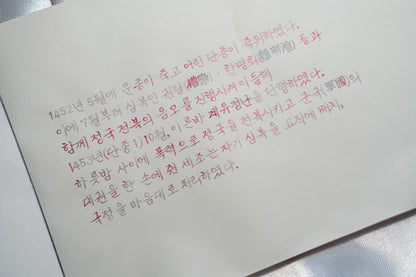 1452년 5월에 문종이 죽고 어린 단종이 즉위하였다.
이에 7월부터 심복인 권람(權擥)·한명회(韓明澮) 등과
함께 정국 전복의 음모를 진행시켜 이듬해
1453년(단종 1) 10월, 이른바 계유정난을 단행하였다.
하룻밤 사이에 폭력으로 정국을 전복시키고 군국(軍國)의
대권을 한 손에 쥔 세조는 자기 심복을 요직에 배치,
국정을 마음대로 처리하였다.